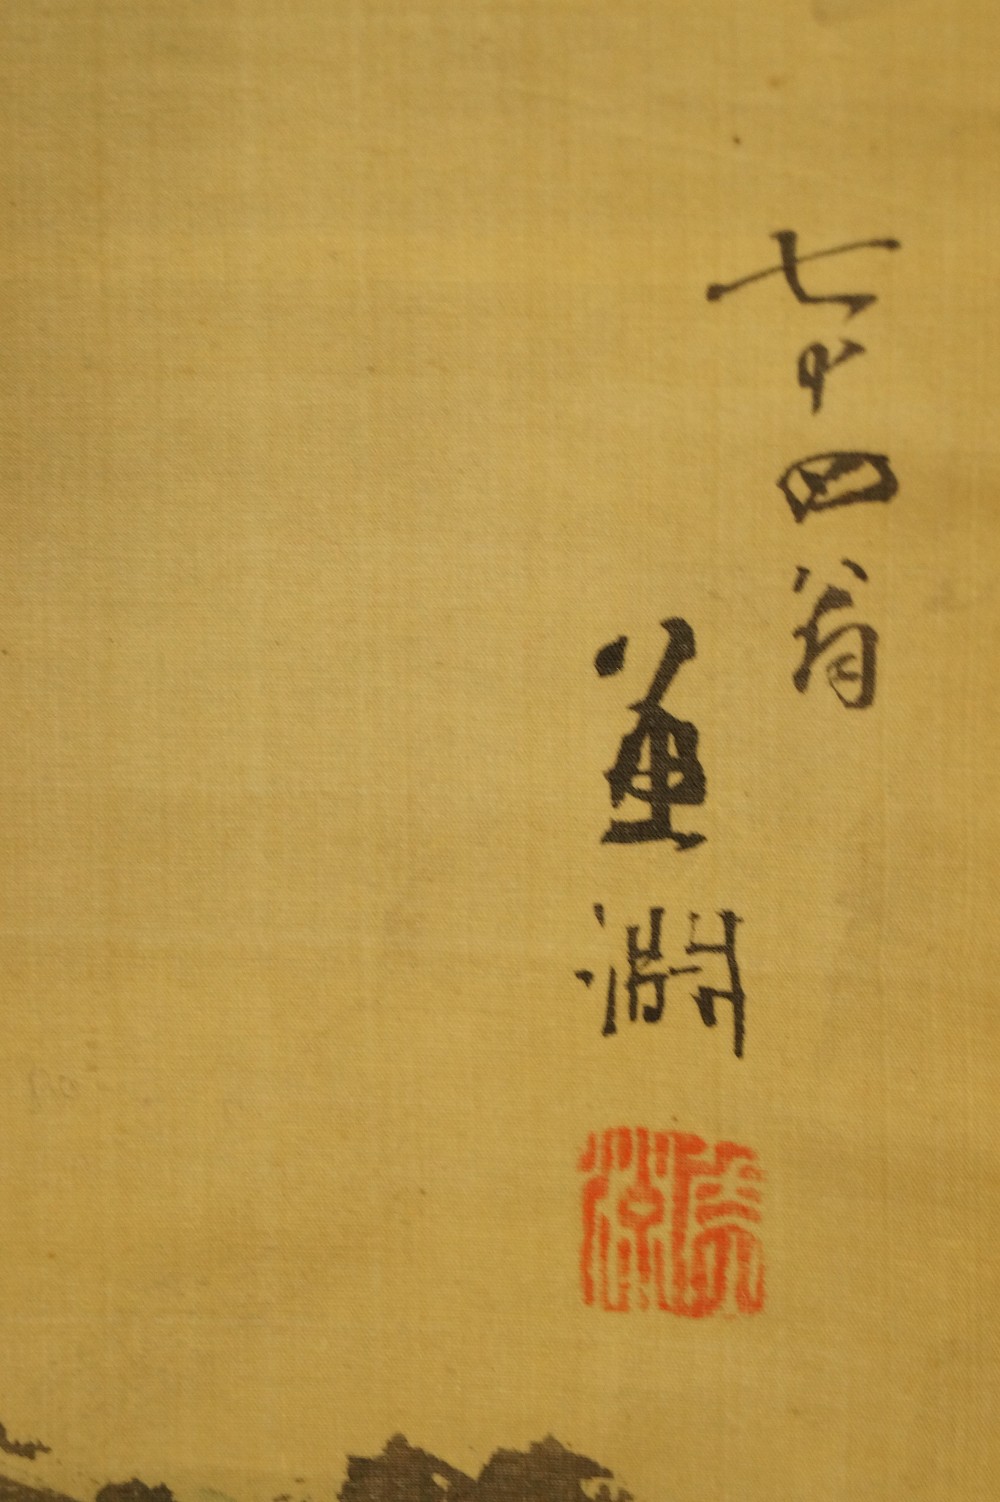 七十四翁
董淵